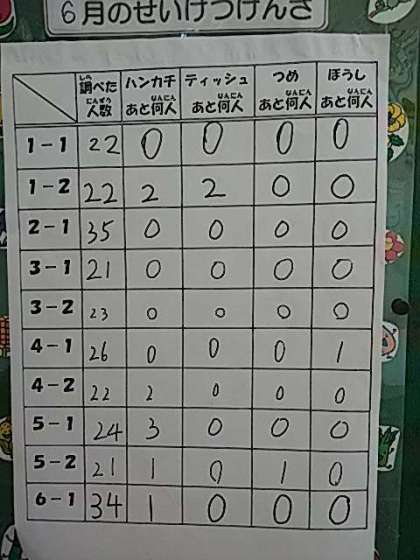 6月のせいけつけんさ
調べた人数 ハンカチあと何人 ティッシュあと何人 つめあと何人 ぼうしあと何人
1-1 22 0 0 0 0
1-2 22 2 2 0 0
2-1 35 0 0 0 0
3-1 21 0 0 0 0
3-2 23 0 0 0 0
4-1 26 0 0 0 1
4-2 22 2 0 0 0
5-1 24 3 0 0 0
5-2 21 1 0 1 0
6-1 34 1 0 0 0